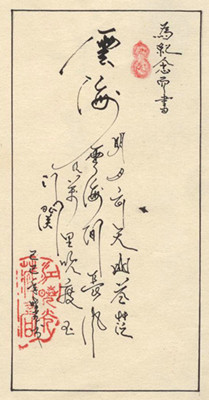 為紀念而書
雲海
明月出天山蒼茫
雲海間長風
几萬里吹度玉
门関